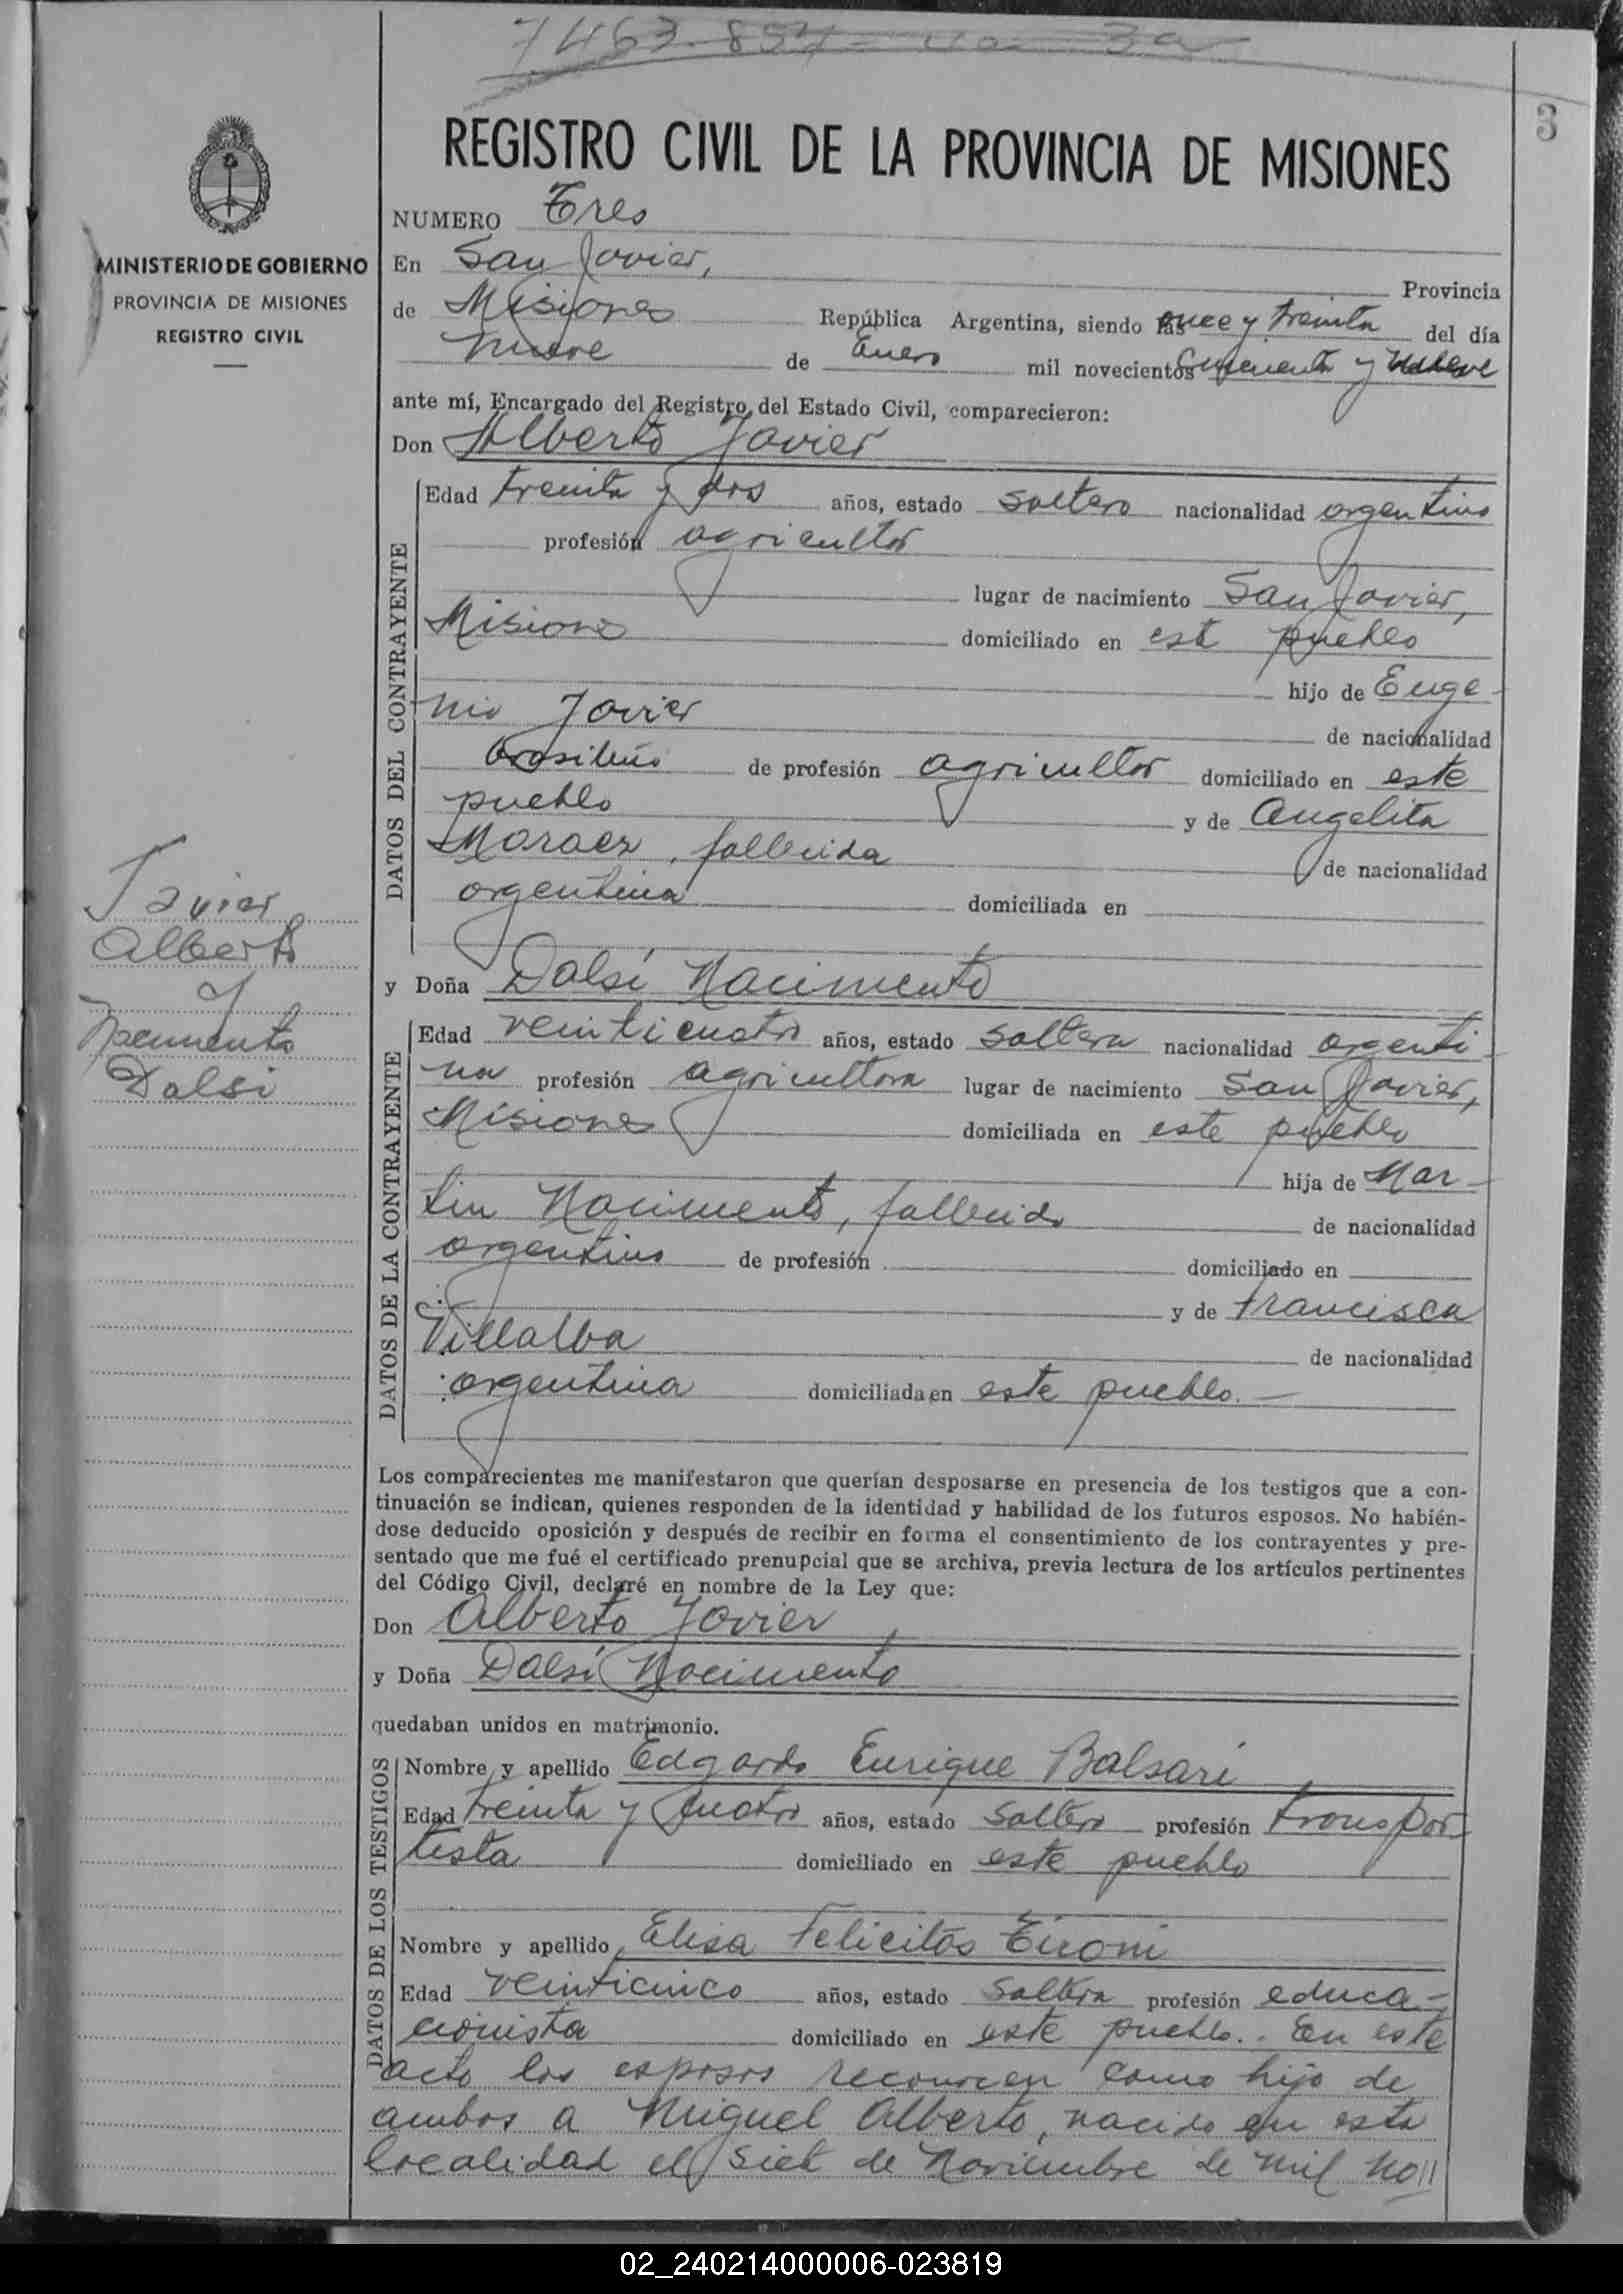 3
REGISTRO CIVIL DE LA PROVINCIA DE MISIONES
NUMERO Tres
MINISTERIO DE GOBIERNO
PROVINCIA DE MISIONES
REGISTRO CIVIL
En San Javier, Provincia
de Misiones República Argentina, siendo las once y treinta del día
nueve de Enero mil novecientos cincuenta y nueve
ante mí, Encargado del Registro del Estado Civil, comparecieron:
Don Alberto Javier
DATOS DEL CONTRAYENTE
Edad treinta y dos años, estado soltero nacionalidad argentino
profesión agricultor
lugar de nacimiento San Javier,
Misiones domiciliado en este pueblo
hijo de Euge-
nio Javier de nacionalidad
brasileño de profesión agricultor domiciliado en este
pueblo y de Angelita
Moraez, fallecida de nacionalidad
argentina domiciliada en
Javier
Alberto
y
Nacimento
Dalsi
y Doña Dalsí Nacimento
DATOS DE LA CONTRAYENTE
Edad veinticuatro años, estado soltera nacionalidad argenti-
na profesión agricultora lugar de nacimiento San Javier,
Misiones domiciliada en este pueblo
hija de Mar-
tin Nacimento, fallecido de nacionalidad
argentino de profesión domiciliado en
y de Francisca
Villalba de nacionalidad
argentina domiciliada en este pueblo.-
Los comparecientes me manifestaron que querían desposarse en presencia de los testigos que a con-
tinuación se indican, quienes responden de la identidad y habilidad de los futuros esposos. No habién-
dose deducido oposición y después de recibir en forma el consentimiento de los contrayentes y pre-
sentado que me fué el certificado prenupcial que se archiva, previa lectura de los artículos pertinentes
del Código Civil, declaré en nombre de la Ley que:
Don Alberto Javier
y Doña Dalsí Nacimento
quedaban unidos en matrimonio.
DATOS DE LOS TESTIGOS
Nombre y apellido Edgardo Enrique Balsari
Edad treinta y cuatro años, estado soltero profesión transpor-
tista domiciliado en este pueblo
Nombre y apellido Elisa Felicitas Tironi
Edad veinticinco años, estado soltera profesión educa-
cionista domiciliado en este pueblo.. En este
acto los esposos reconocen como hijo de
ambos a Miguel Alberto, nacido en esta
localidad el siete de Noviembre de mil no//
02_240214000006-023819